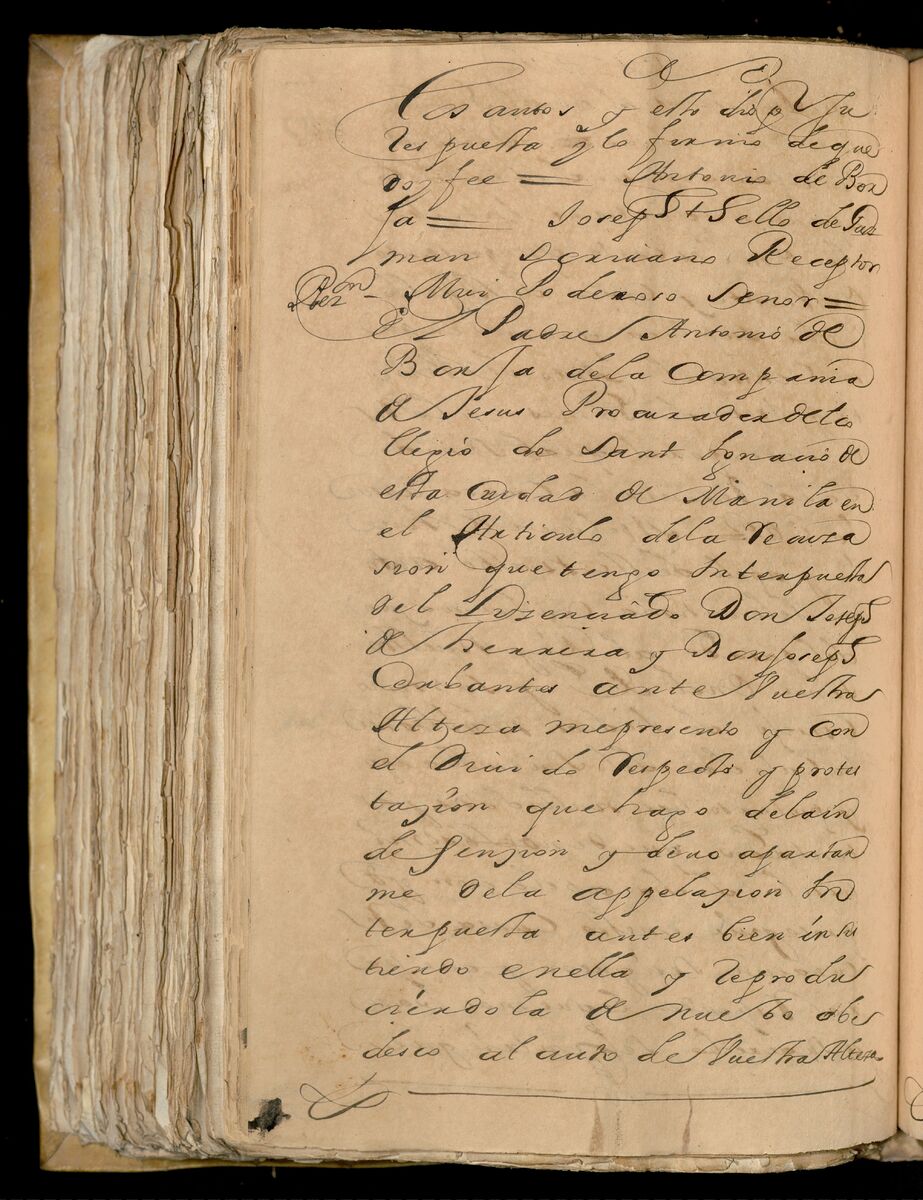 los autos y esto dio por su
respuesta y lo firmo de que
doy fee = Antonio de Bor
ja = Joseph Sello de Guz
man Scriuano Receptor
Petizn – Mui Poderoso Senor =
el Padre Antonio de
Borja dela Compania
de Jesus Procurador del Co
llegio de Sant Ignacio de
esta Ciudad de Manila en
el Articulo dela recusa
sion que tengo Interpuesta
del Lizenciado Don Joseph
de herrera y Don Joseph
Cerbantes ante Vuestra
Alteza me presento y con
el Diuido respecto y protes
tazion que hago dela in
defenzion y de no apartar
me dela appelazion In
terpuesta antes bien insis
tiendo en ella y reprodu
ciendola de nuebo obe
desco al auto de Vuestra Alteza